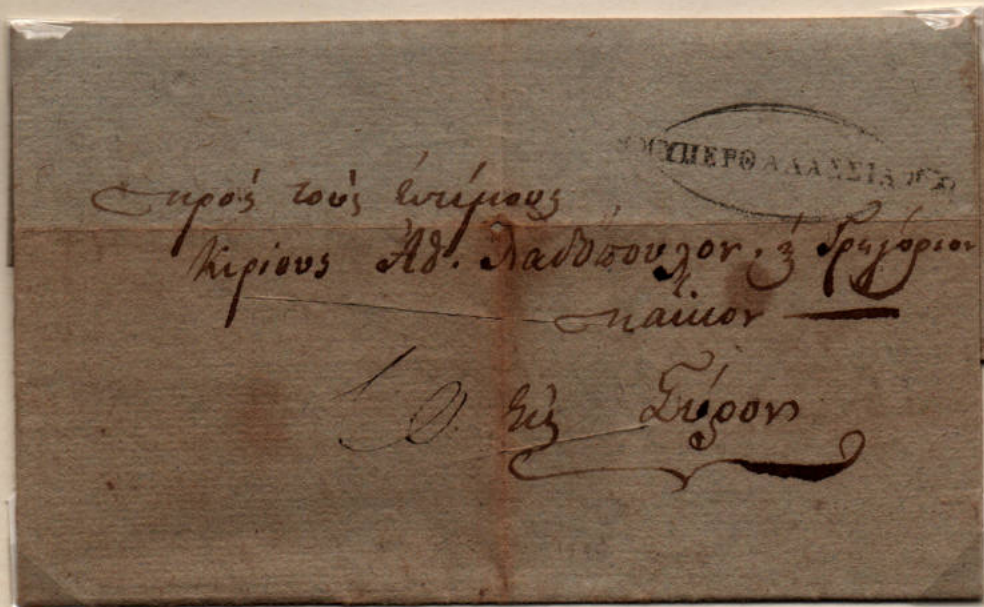 ΥΠΕΡΘΑΛΑΣΣΙΑ
πρός τούς ἐντίμους
Κυρίους Ἀθ. Λαδόπουλον. ȣ Γρηγόριον
Πάϊκον
Εἰς Σύρον